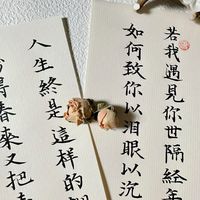 若我遇見你世隔經年
如何致你以泪眼以沉
人生終是這樣的
得春來又把